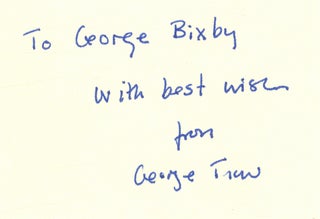 To George Bixby
with best wishes
from
George Trow